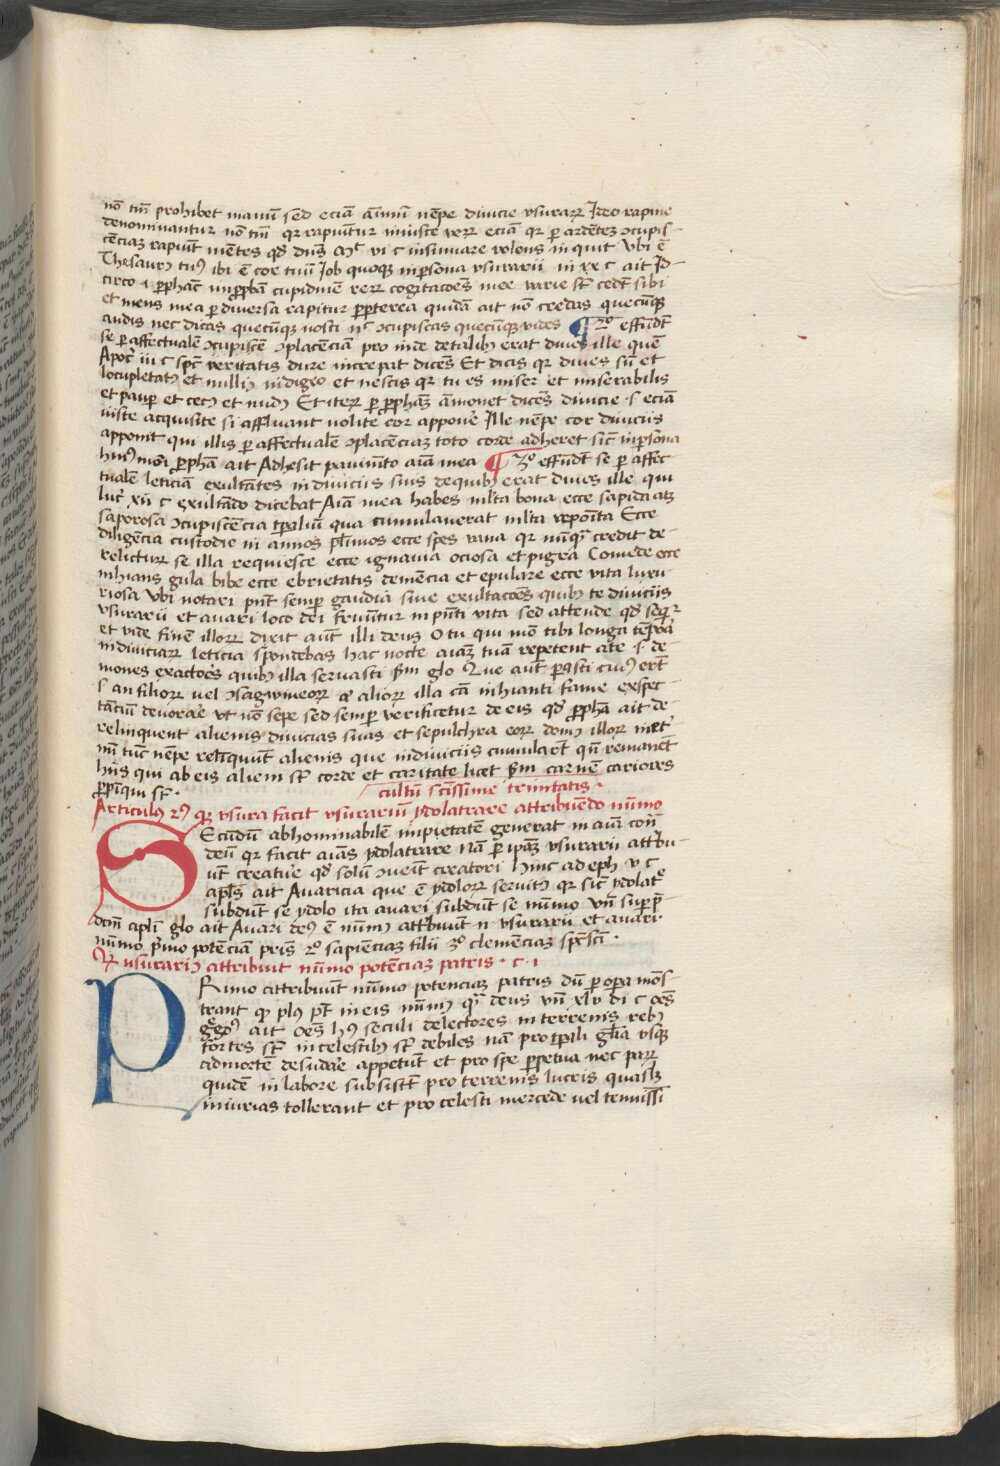 nō tm̄ prohibet manū sed eciā aīmū nēpe diuicie vsurarꝝ Ideo rapine
denominantur nō tm̄ qꝛ rapiūtur iniuste verꝝ eciā qꝛ ꝑ ardētēꝫ ↄcupis-
cēciaꝫ rapiūt mētes qd̕ dn̄s Mͭ vi c insinuare volens inquit Vbi ē
Thesaurꝰ tuꝰ ibi ē cor tuū Job quoqꝫ in ꝑsona vsurarii in xx c ait Id-
circo
cogitacoēs mee varie st̄ cedt̄ sibi
et mens mea ꝑ diuersa rapitur ꝓpterea quidā ait nō credas quecūqꝫ
audis nec dicas quecūqꝫ nosti nͨ ↄcupiscas quecūqꝫ vides ¶ 2ͦ effūdt̄
se ꝑ affectualē ↄcupiscē ↄplacēciā pro inde de talibꝫ erat diues ille quē
Apoc̄ iii c spc̄ veritatis dure increpat dicēs Et dicis qꝛ diues sū et
locupletatꝰ et nulliꝰ indigeo et nescis qꝛ tu es miser et miserabilis
et paupꝛ et cecꝰ et nudꝰ Et iterꝝ ꝑ ꝓphaꝫ āmonet dicēs diuicie .s. eciā
iuste acquisite si affluant nolite cor apponē Ille nēpe cor diuiciis
apponit qui illis ꝑ affectualē ↄplacēciaꝫ toto corde adheret sic̄ in ꝑsona
huiꝰmōi ꝓphā ait Adhesit pauimēto aīa mea ¶ 3ͦ effūdt̄ se ꝑ affec-
tualē leticiā exultātes in diuiciis suis de quibꝫ erat diues ille qui
luc̄ xii c exultādo dicebat Aīa mea habes ml̄ta bona ecce sapida atqꝫ
saporosa ↄcupiscēcia tp̄aliū qua cumulauerat ml̄ta reposita Ecce
diligēcia custodie in annos pl̄imos ecce spes vana qꝛ nūqꝫ credit de-
relictur se illa requiesce ecce ignauia ociosa et pigra Comede ecce
inhians gula bibe ecce ebrietatis demēcia et epulare ecce vita luxu-
riosa Vbi notari pn̄t semꝑ gaudia siue exultacoēs quibꝫ te diuiciis
vsurarii et auari loco dei fruūtur in pn̄ti vita sed attende qd̕ seqͬ
et vide finē illorꝝ dixit aūt illi deus O tu qui mō tibi longa tēpora
in diuiciarꝝ leticia spondebas hac nocte aīaꝫ tuā repetent a te .s. de-
mones exactoēs quibꝫ illa seruasti sm̄ glo Que aūt ꝑasti cuiꝰ er̄t
.s. an filiorꝝ vel ↄsagwineorꝝ aͭ aliorꝝ illa cā inhianti fame expec-
tāciū deuorare vt nō sepe sed semꝑ verificetur de eis qd̕ ꝓphā ait de-
relinquent alienis diuicias suas et sepulchra eorꝝ domꝰ illorꝝ inet̄
nū tūc nēpe relīquūt alienis que in diuiciis cumular̄t qn̄ remanēt
hiis qui ab eis alieni st̄ corde et caritate licet sm̄ carnē cariores
ꝓpinqui st̄ .
cultū sc̄issime trinitatis .
Articulus 2ꝰ qꝛ vsura facit vsurariū ydolatrare attribuēdo nūmo
SEcūdū abhominabilē impietatē generat in aīa con̄
deū qꝛ facit aīas ydolatrare Nā ꝑ ipaꝫ vsurarii att̕bu-
ūt creature qd̕ solū ↄuēit creatori Hinc ad eph v c
apl̄s ait Auaricia que ē ydolorꝝ seruitꝰ qꝛ sic̄ ydolatͤ
subdūt se ydolo ita auari subdūt se nūmo Vn̄ suꝑ ꝑ-
dcm̄ apl̄i glo ait Auari deꝰ ē nūmꝰ att̕buūt .n. vsurarii et auari
nūmo pͥmo potēciā pr̄is 2ͦ sapiēciaꝫ filii 3ͦ clemēciaꝫ spc̄sc̄i .
Qꝛ vsurariꝰ attribuit nūmo potēciaꝫ patris . c . i
PRimo attribuūt nūmo potenciaꝫ patris dū ꝑ opa mōs-
trant qꝛ plꝰ pt̄ in eis nūmꝰ qͣ deus Vn̄ xlv di c oēs
gͤgoꝰ ait Oēs hꝰ seculi delectores in terrenis rebꝫ
fortes st̄ in celestibꝫ st̄ debiles nā pro tp̄ali glīa vsqꝫ
ad mortē desudare appetūt et pro spe ꝑpetua nec parꝝ
quidē in labore subsistt̄ pro terrenis lucris quaslꝫ
iniurias tollerant et pro celesti mercede vel tenuissi